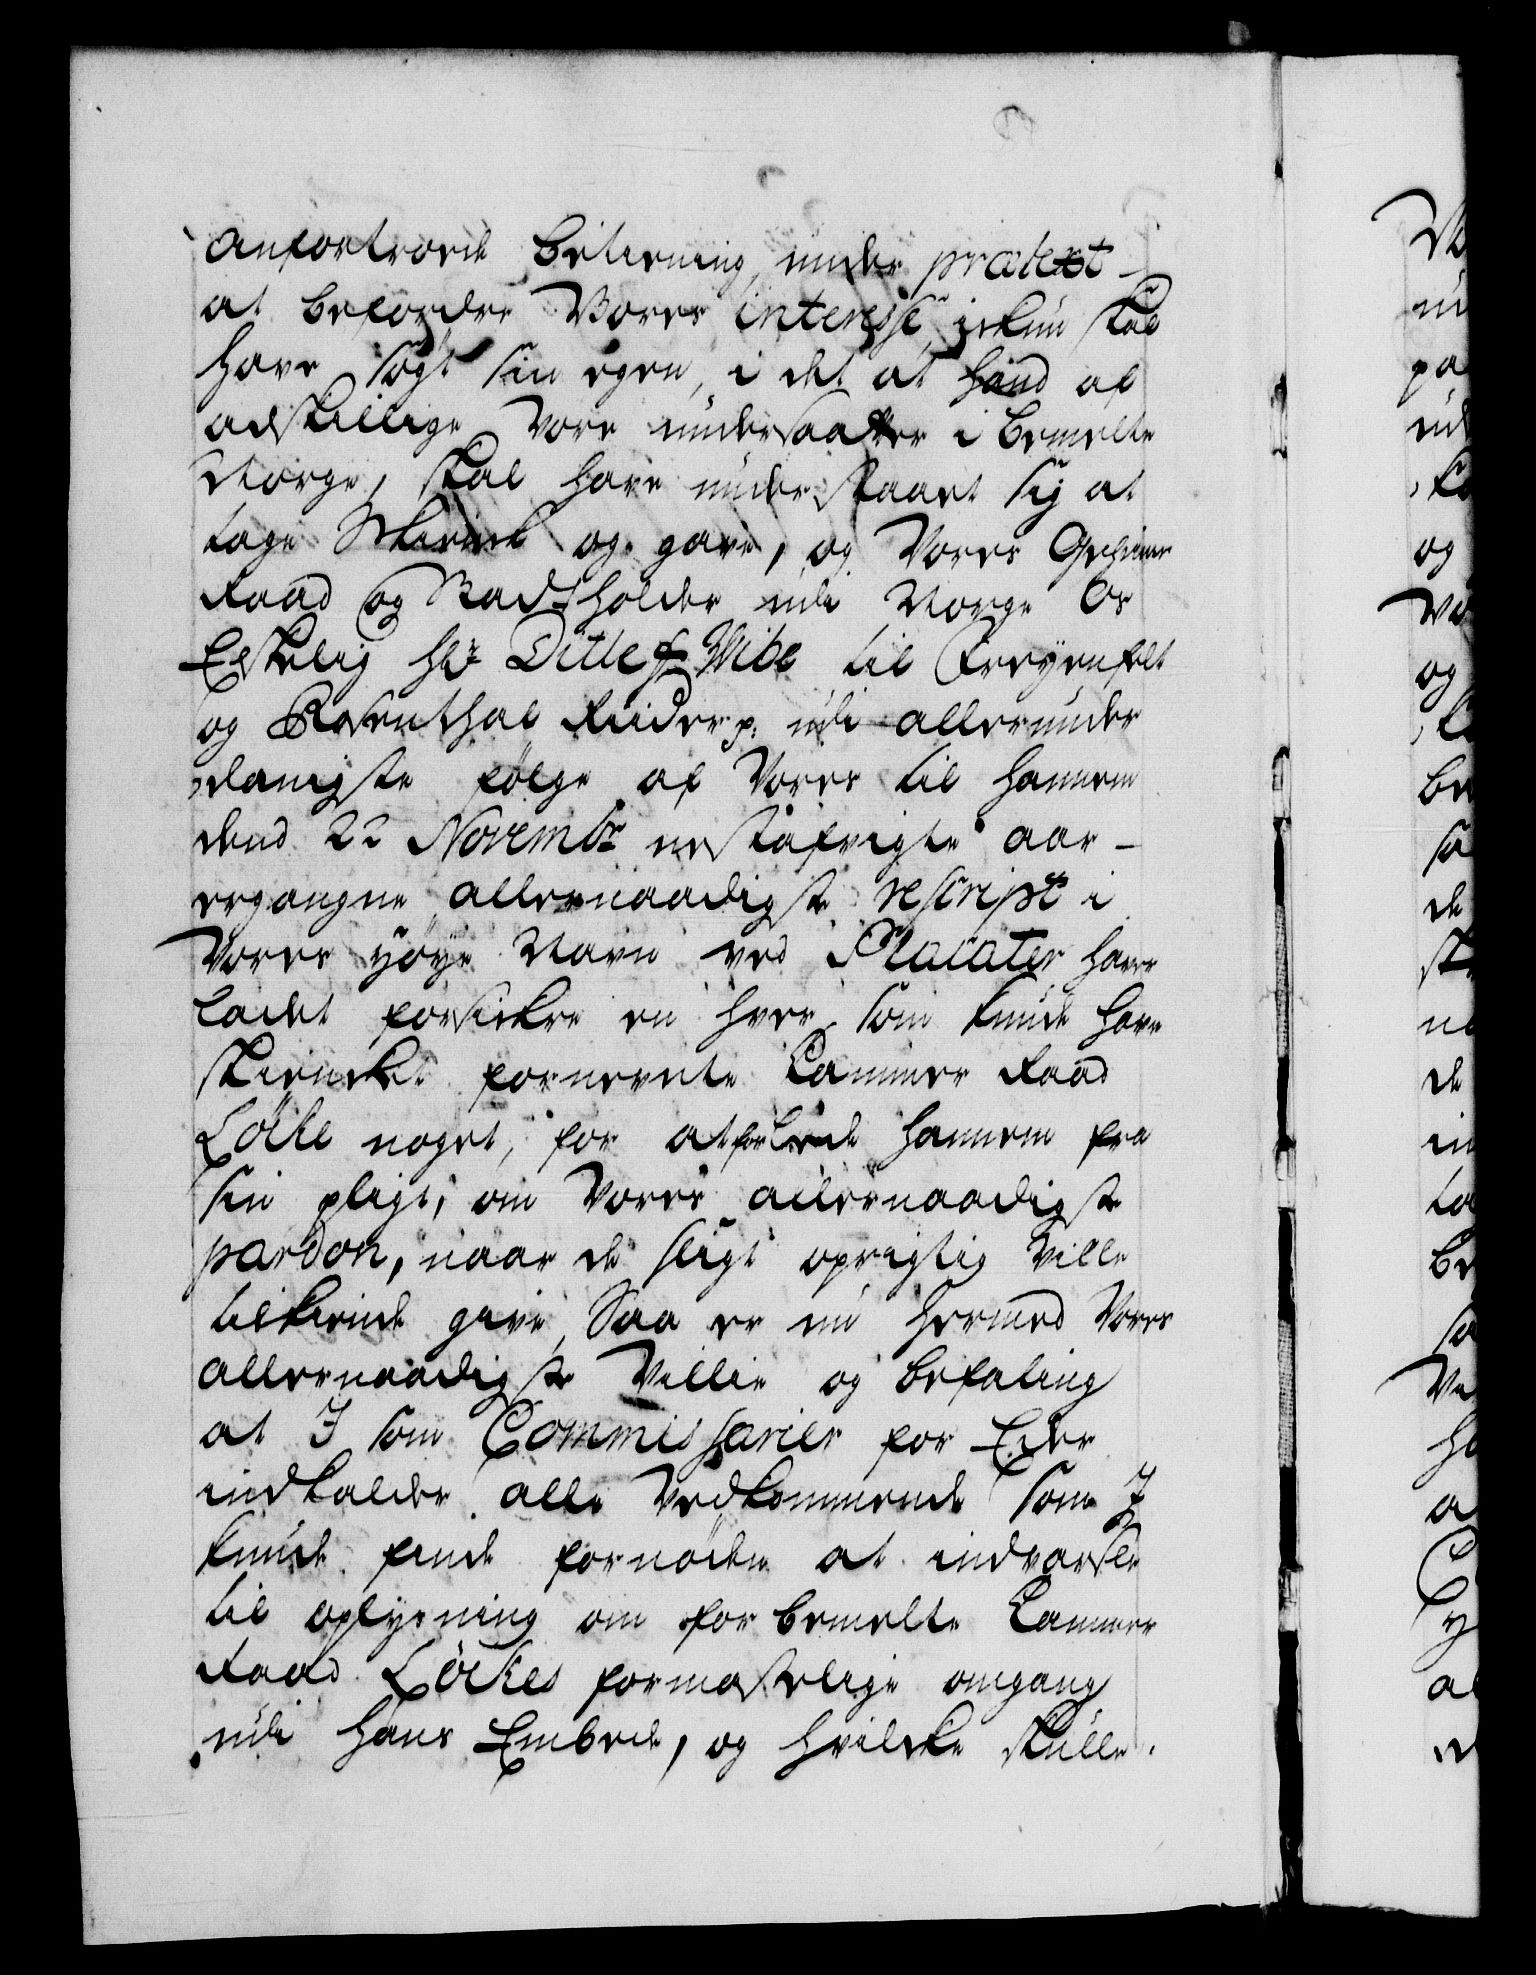 anfortroede betiening, under prætext
at befordre Vores interesse, ickun skal
have søgt sin egen, i det at hand af
adskillige Vore undersaatter i bemelte
Norge, skal have understaaet sig at
tage Skienck og gave, og Vores Geheime
Raad og Stadtholder udi Norge Os
Elskelig Hr Ditlef Wibe til Freyenfelt
og Rosenthal Ridder p. udi allerunder
danigste følge af Vores til hannem
dend 22 Novembr nestafvigte aar
ergangne allernaadigste rescript i
Vores høye Navn ved Placater haver
ladet forsickre en hver som kunde have
skiencket fornevnte Cammer Raad
Löcke noget, for at forlede hannem fra
sin pligt, om Vores allernaadigste
pardon, naar de sligt oprigtig Ville
tilkiende give, Saa er nu hermed Vores
allernaadigste Villie og befaling
at I som Commissarier for Eder
indkalder alle Vedkommende som I
kunde finde fornøden at indvarsle
til oplysning om forbemelte Cammer
Raad Löckes formastelige omgang
udi hans Embede, og hvilcke skulle